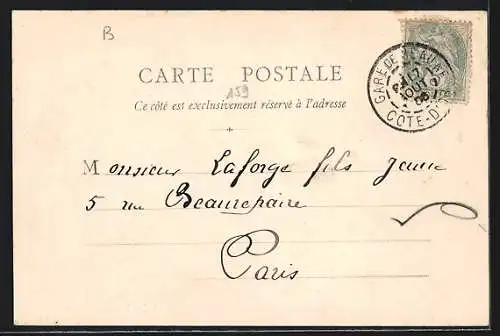 B
CARTE POSTALE
159
Ce côté est exclusivement réservé à l'adresse
GARE DE BEAUNE
CÔTE-D'
Monsieur Laforge fils Jeune
5 rue Beaurepaire
Paris